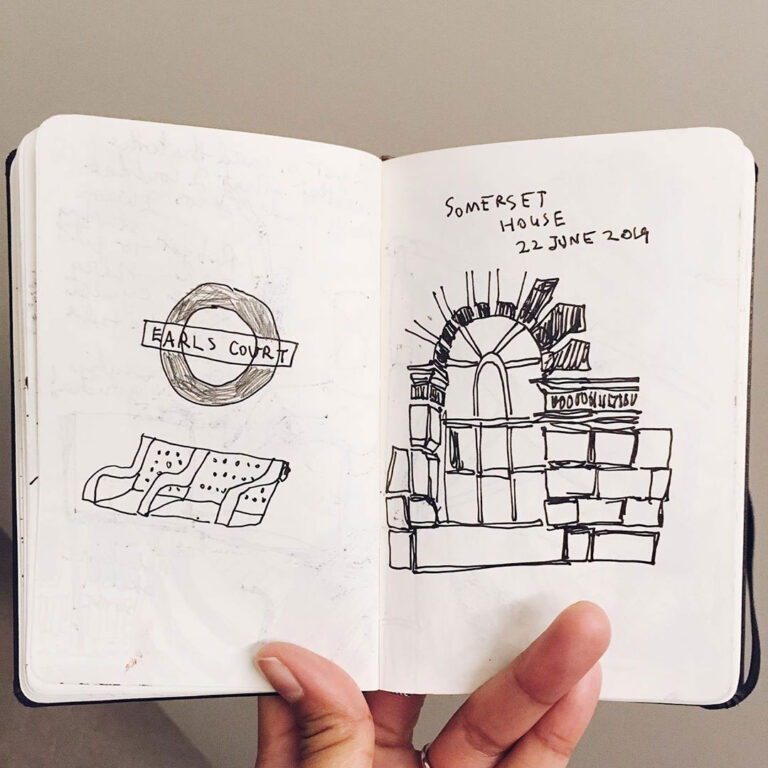 EARLS COURT
SOMERSET
HOUSE
22 JUNE 2019